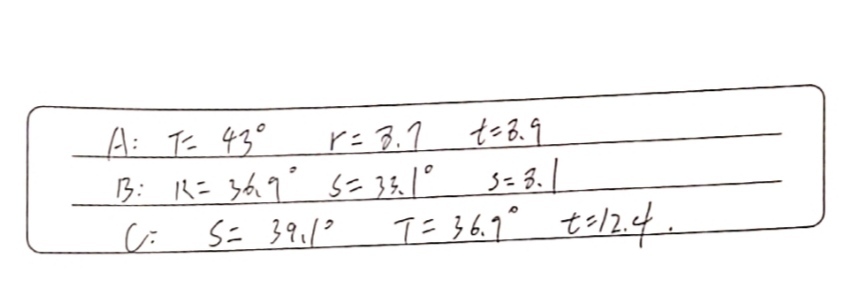 A: T= 43° r= 8.7 t=8.9
B: R= 36.9° S= 33.1° s= 8.1
C: S= 39.1° T= 36.9° t=12.4.